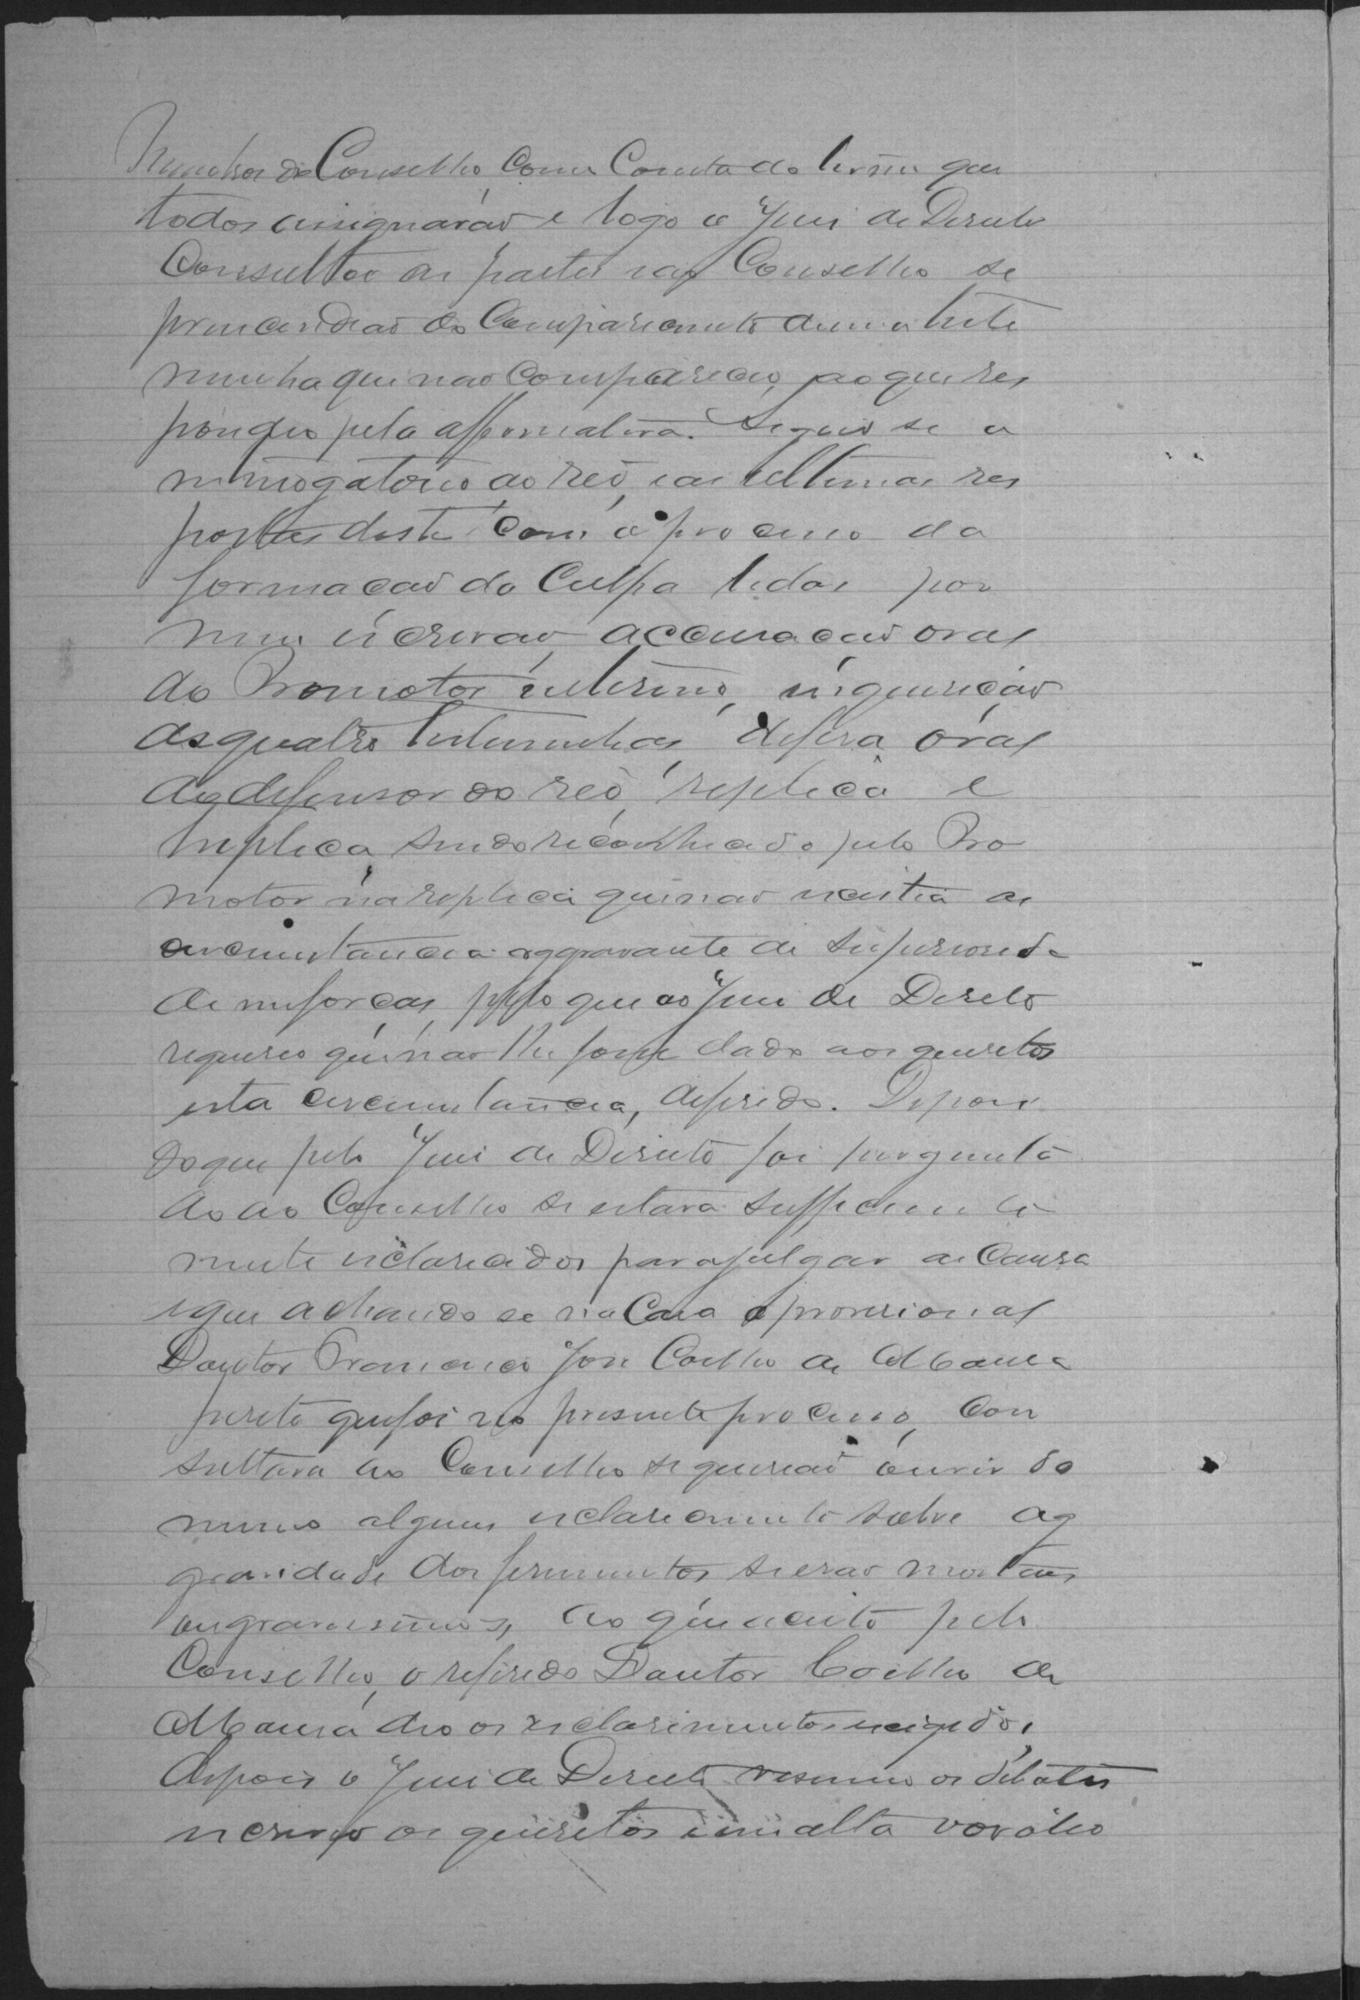 Membros do Conselho como Consta do termo que
todos assignarão e logo o Juiz de Direito
Consultou as partes e ao Conselho se
prescendião do Comparecimento de uma teste
munha que não Compareceu, ao que res
pondeu pela affirmativa. Seguio se o
interrogatorio ao reo, e as ultimas res
postas deste com o processo da
formacão da Culpa lidas por
mim escrivão, accusacão oral
do Promotor interino, inquirição
das quatro testemunhas, defesa oral
do defensor do reo, replica e
treplica, sendo reconhecido pelo Pro
motor na replica que não existia a
circumstancia aggravante de superiorida
de em forças, pelo que ao Juiz de Direito
requereo que não lhe fosse dado aos quesitos
esta circumstancia, deferido. Depois
do que pelo Juiz de Direito foi pergunta
do ao Conselho se estava sufficiente
mente esclarecidos para julgar a Causa
e que achando se na Casa o provisional
Doutor Francisco José Coelho de Moura
perito que foi no presente processo, Con
sultava ao Conselho se querião ouvir do
mesmo algum esclarecimento sobre a g
gravidade dos ferimentos se erão mortaes
ou gravissimos, ao que aceito pelo
Conselho, o referido Doutor Coelho de
Moura deo os esclarimentos exigidos,
depois o Juiz de Direito resumio os debates
escreveo os quesitos em alta voz oleo